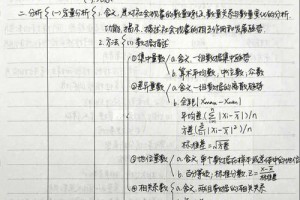 二.分析{(一)定量分析{1.含义:是对社会现象的数量特征、数量关系与数量变化的分析.
功能:揭示、描述社会现象的相互作用和发展趋势
2.方法{(1)数据描述
①集中量数{a.含义:一组数据集中趋势
b.算术平均数,中位数,众数
②差异量数{a.含义:一组数据的离散趋势
b.全距|Xmax-Xmin|
平均差(∑|Xi-X̄|)/n
方差(∑|Xi-X̄|²)/n
标准差=√方差
③地位量数{a.含义:单个数据在样本或总体中的地位
b.百分等级;标准分数,Z=
④相关系数{a.含义:两组数据的相关关系